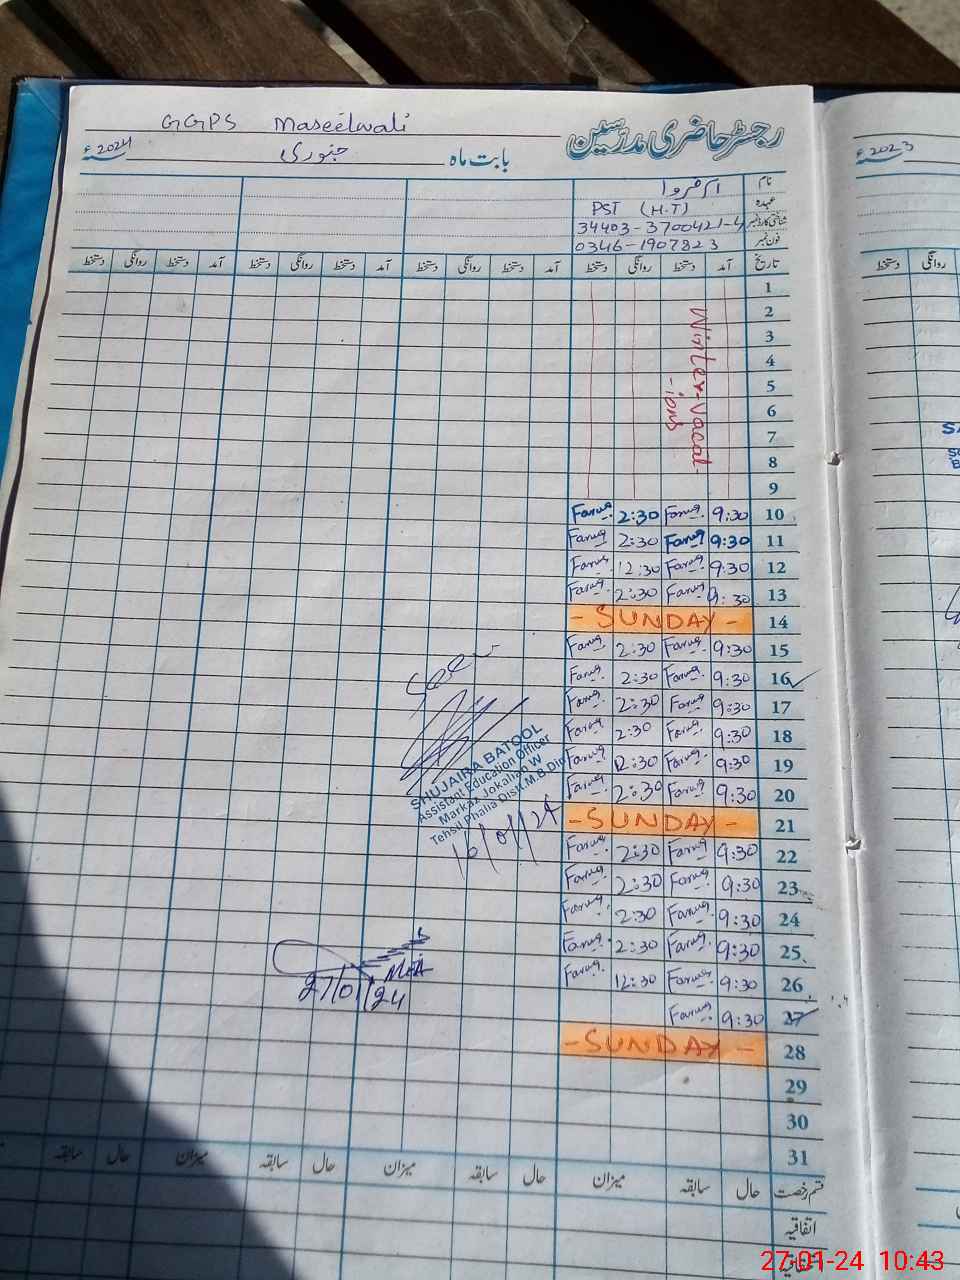 GGPS Maseelwali
رجسٹر حاضری مدرسین
بابت ماہ جنوری 2024ء
2023ء
نام
عہدہ PST (H.T)
شناختی کارڈ نمبر 34403-3700421-4
فون نمبر 0346-1907823
تاریخ آمد دستخط روانگی دستخط آمد دستخط روانگی دستخط آمد دستخط روانگی دستخط آمد دستخط روانگی دستخط
روانگی دستخط
1
2
3
4
5
6
7
8
9
Winter-vacat
-ions
10 9:30 Farwa 2:30 Farwa
11 9:30 Farwa 2:30 Farwa
12 9:30 Farwa 12:30 Farwa
13 9:30 Farwa 2:30 Farwa
14 - SUNDAY -
15 9:30 Farwa 2:30 Farwa
16 9:30 Farwa 2:30 Farwa
17 9:30 Farwa 2:30 Farwa
18 9:30 Farwa 2:30 Farwa
19 9:30 Farwa 12:30 Farwa
20 9:30 Farwa 2:30 Farwa
21 - SUNDAY -
22 9:30 Farwa 2:30 Farwa
23 9:30 Farwa 2:30 Farwa
24 9:30 Farwa 2:30 Farwa
25 9:30 Farwa 2:30 Farwa
26 9:30 Farwa 12:30 Farwa
27 9:30 Farwa
28 - SUNDAY -
29
30
31
Seen
SHUJAIRA BATOOL
Assistant Education Officer
Markaz Jokalian W
Tehsil Phalia Distt.M.B.Din
16/01/24
MEA
27/01/24
قسم رخصت حال سابقہ میزان حال سابقہ میزان حال سابقہ میزان حال سابقہ
اتفاقیہ
27-01-24 10:43